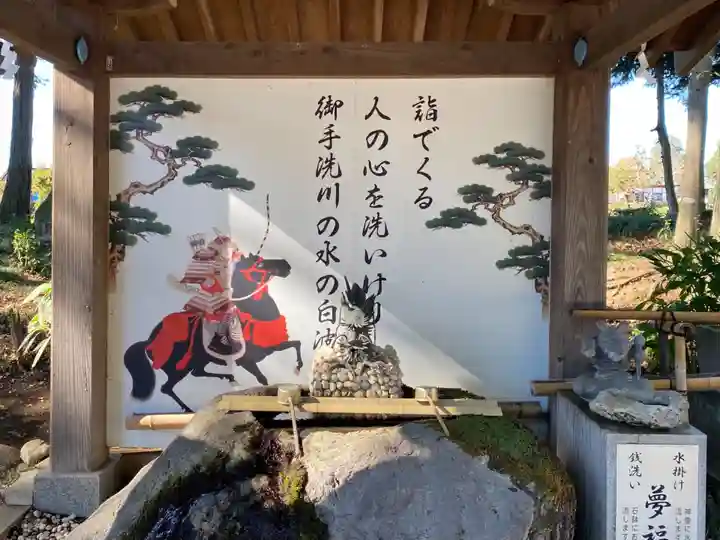 詣でくる
人の心を洗いけり
御手洗川の水の白
水掛け
銭洗い
夢福